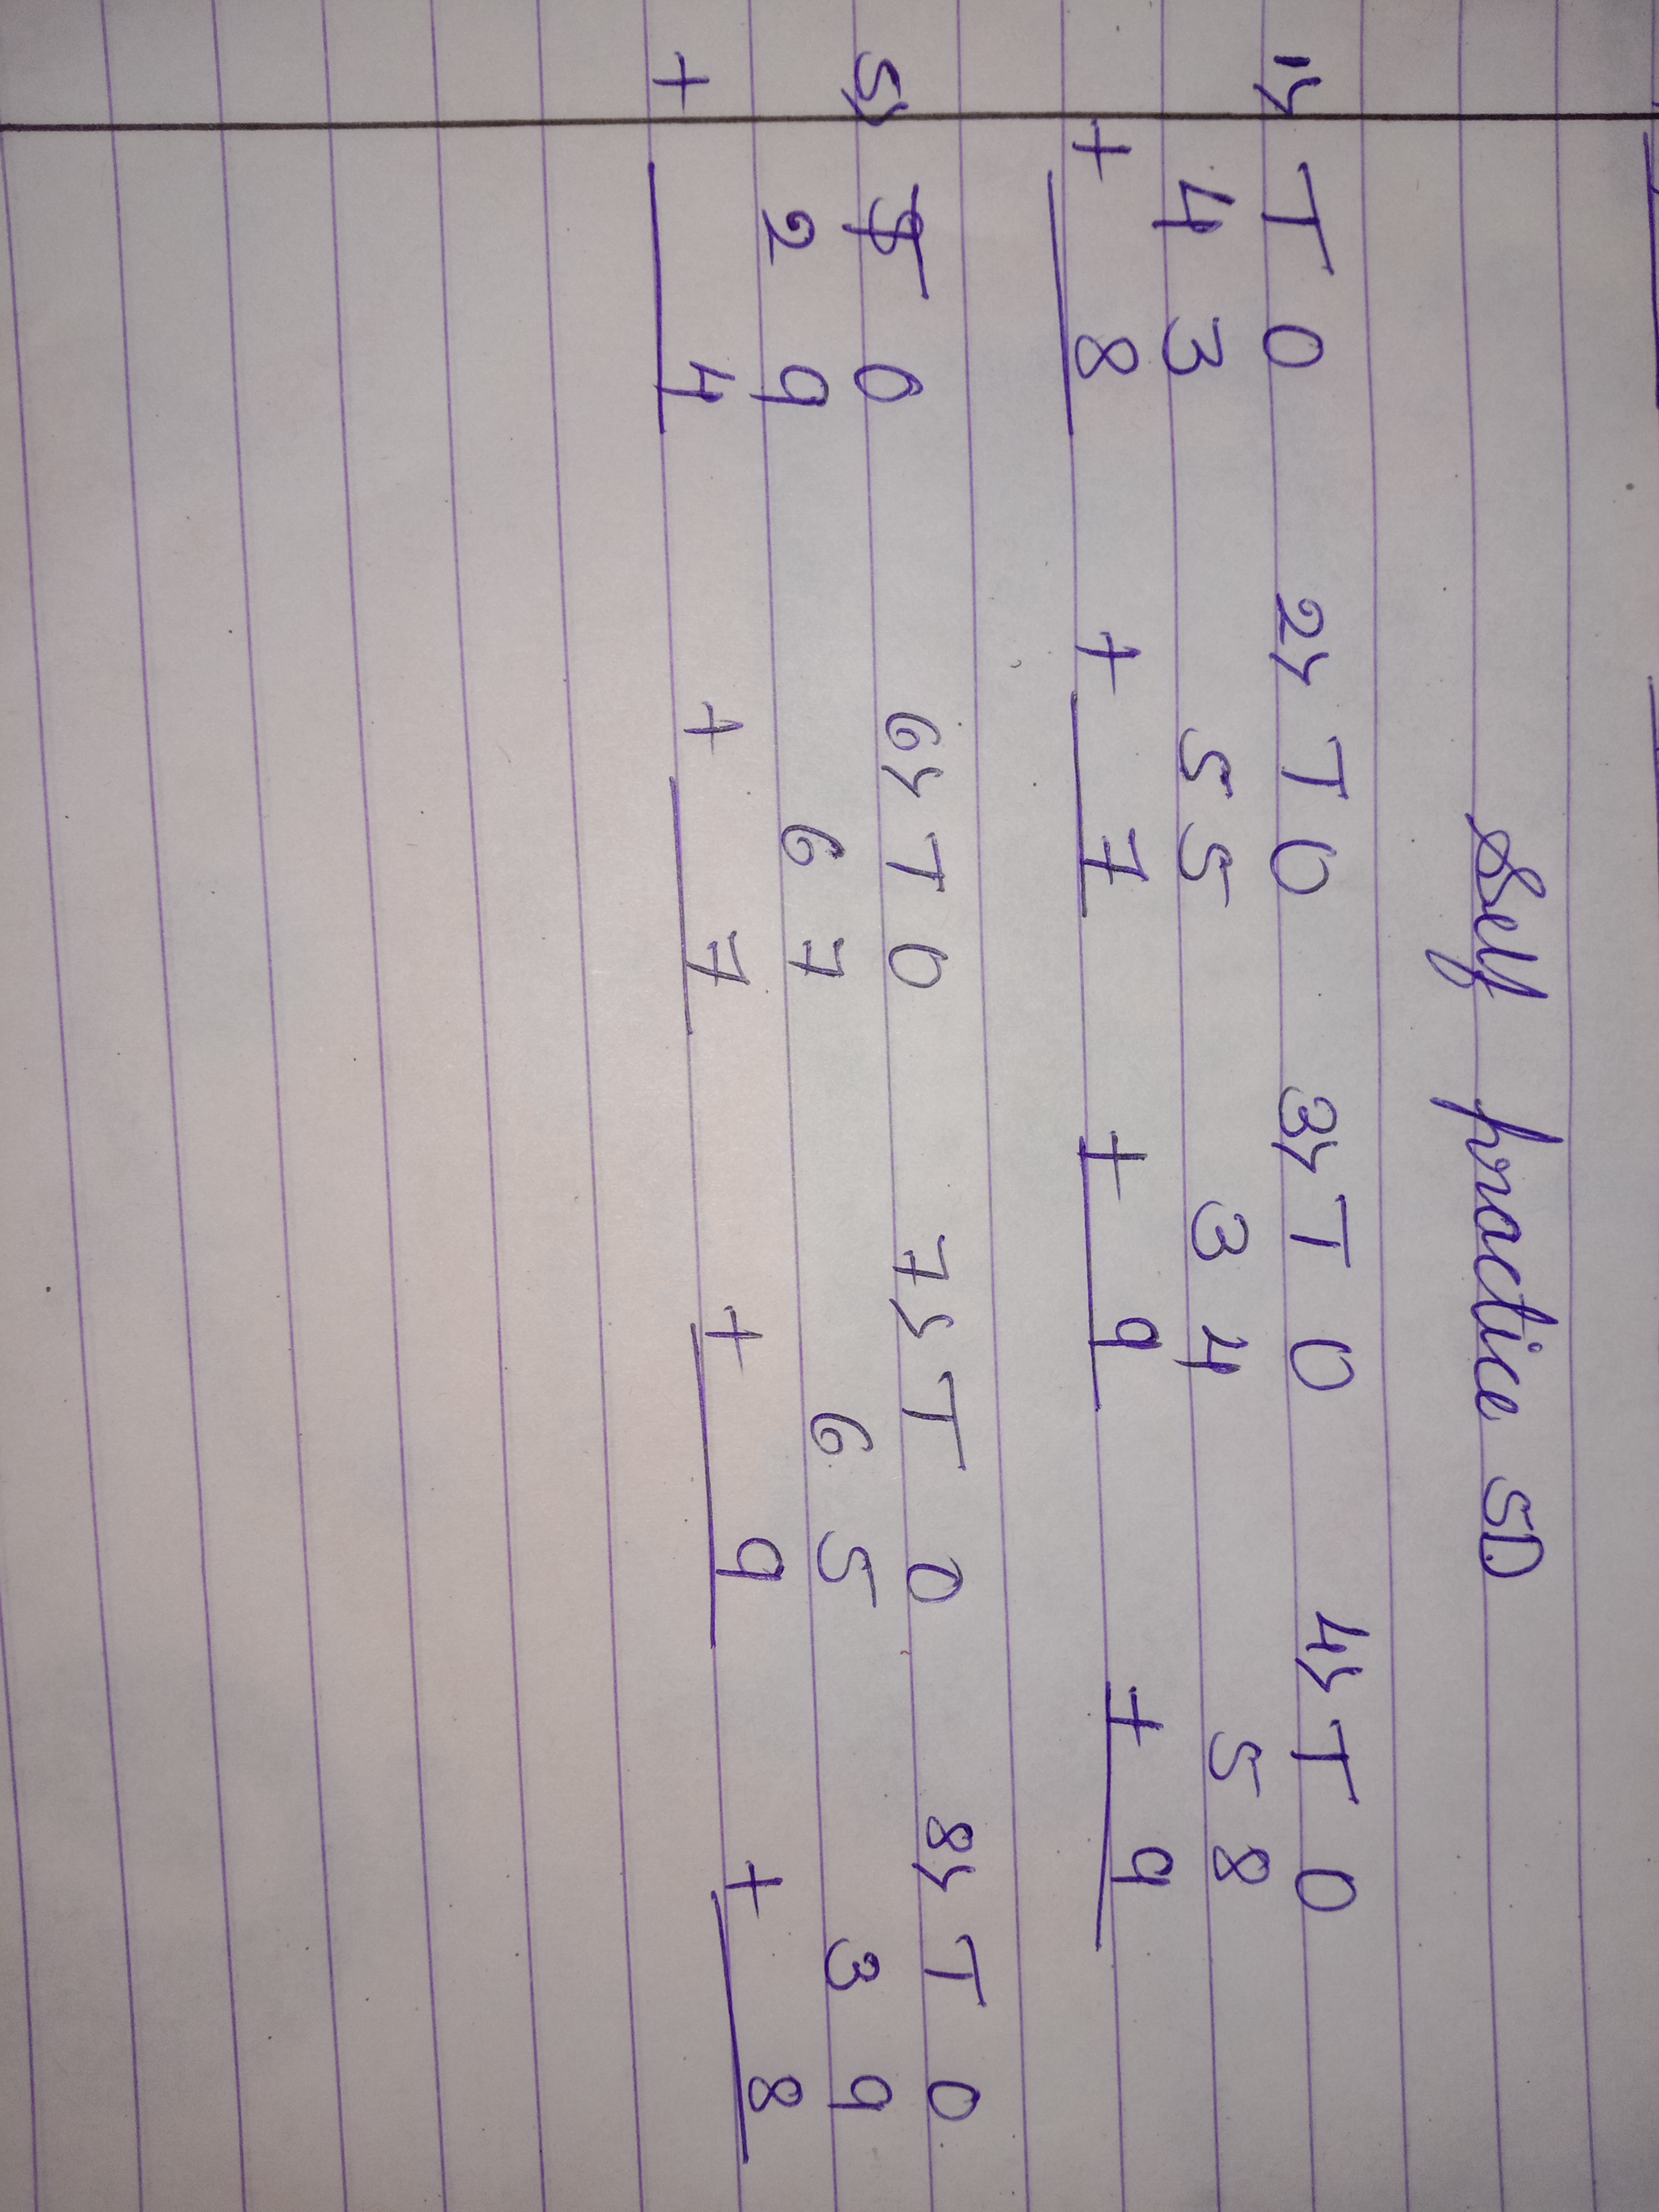 Self practice SD
1) T O 2) T O 3) T O 4) T O
4 3 5 5 3 4 5 8
+ 8 + 7 + 9 + 9
5) T O 6) T O 7) T O 8) T O
2 9 6 7 6 5 3 9
+ 4 + 7 + 9 + 8